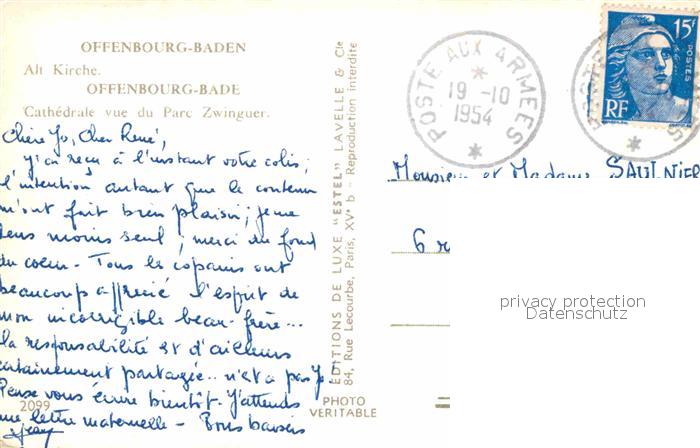 OFFENBOURG-BADEN
Alt Kirche.
OFFENBOURG-BADE
Cathédrale vue du Parc Zwinguer.
Chère Yo, Cher René,
J'ai reçu à l'instant votre colis;
l'intention autant que le contenu
m'ont fait bien plaisir; je me
sens moins seul; merci du fond
du coeur - Tous les copains ont
beaucoup apprécié l'esprit de
mon incorrigible beau-frère...
la responsabilité est d'ailleurs
certainement partagée.. n'est-ce pas Yo!
Pense vous écrire bientôt. J'attends
une lettre maternelle - Bons baisers
Jean
2099
ÉDITIONS DE LUXE "ESTEL" LAVELLE & Cie
84, Rue Lecourbe, Paris, XVe b - Reproduction interdite
PHOTO
VÉRITABLE
POSTE AUX ARMÉES
19-10
1954
15F
POSTES
RF
Monsieur et Madame SAULNIER
6 r
privacy protection
Datenschutz